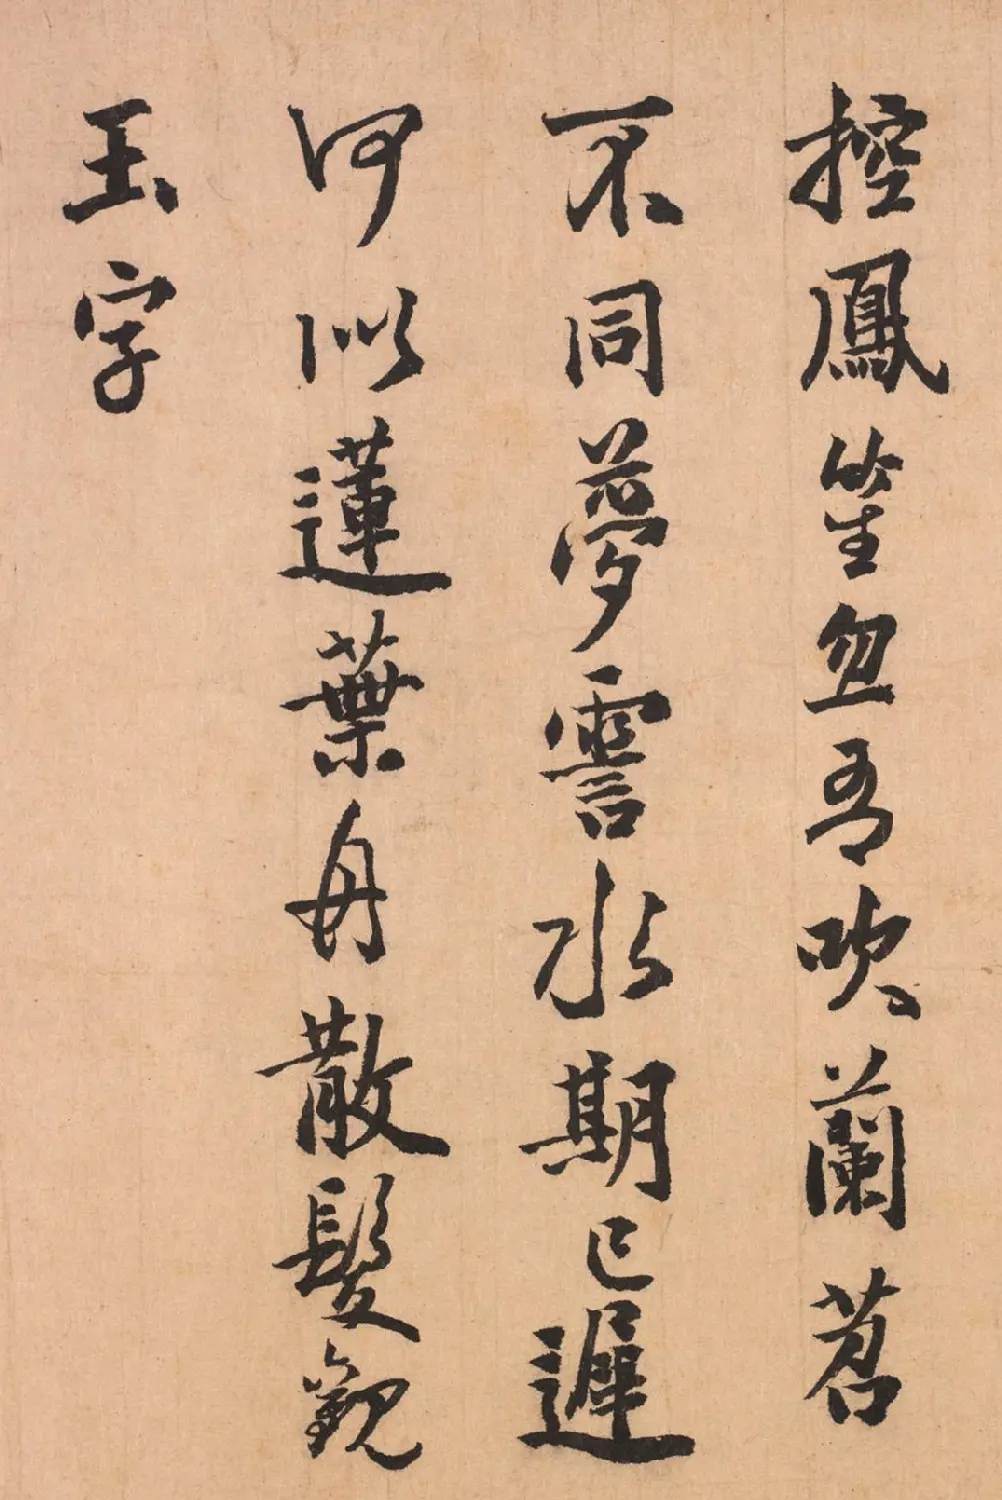 控鳳笙忽吹蘭苕
不同夢霅水期已遲
何以蓮葉舟散髮觀
玉字